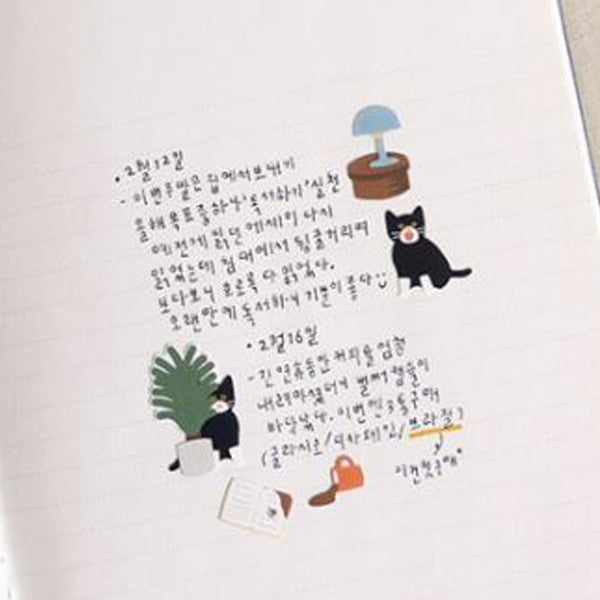 • 2월 12일
- 이번 주말은 집에서 보내기
올해 목표 중 하나 '독서하기' 실천
예전에 읽던 에세이 다시
읽었는데 침대에서 뒹굴거리며
보다보니 호로록 다 읽었다.
오랜만에 독서하니 기분이 좋다
• 2월 16일
- 긴 연휴동안 커피를 엄청
내려마셨더니 벌써 캡슐이
바닥났다. 이번엔 3통 구매
(볼라시오/디카페인/브라질)
이건 첫 구매